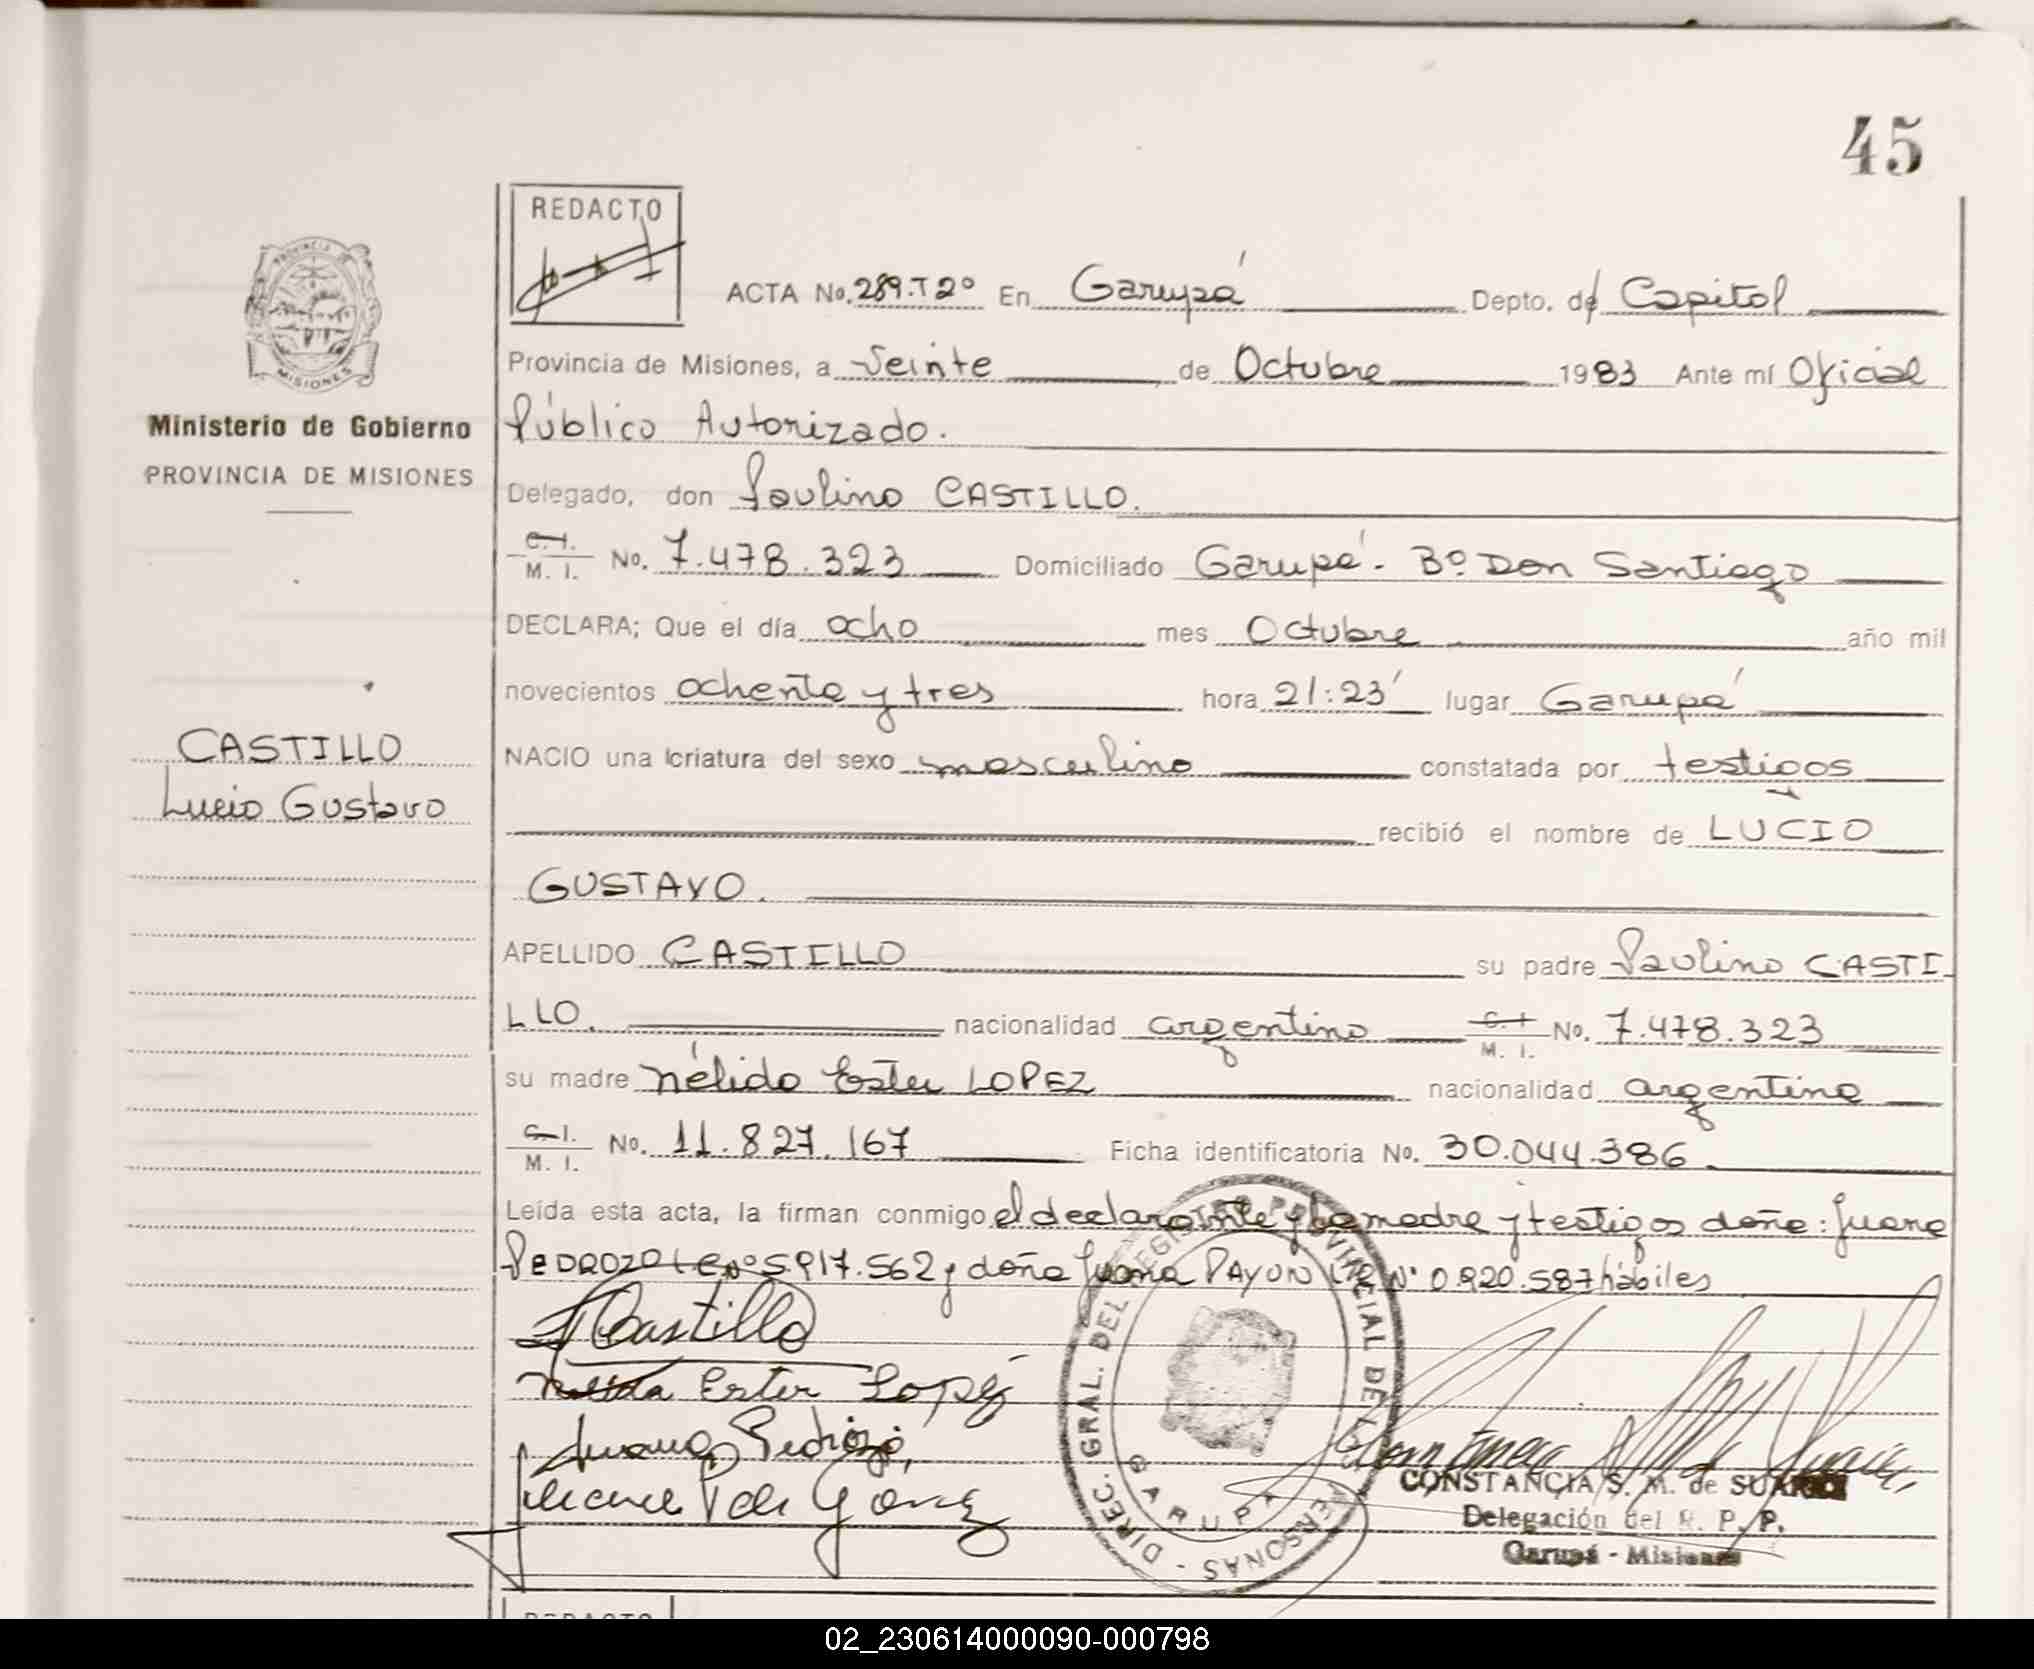 45
REDACTO
ACTA No. 289.T2º En Garupá Depto. de Capital
Provincia de Misiones, a Veinte de Octubre 1983 Ante mí Oficial
Público Autorizado.
Delegado, don Paulino CASTILLO.
C.I. M. I. No. 7.478.323 Domiciliado Garupá. Bº Don Santiago
DECLARA; Que el día ocho mes Octubre año mil
novecientos ochenta y tres hora 21:23' lugar Garupá
NACIO una criatura del sexo masculino constatada por testigos
recibió el nombre de LUCIO
GUSTAVO.
APELLIDO CASTILLO su padre Paulino CASTI
LLO. nacionalidad argentino C.I. M. I. No. 7.478.323
su madre Nélida Ester LOPEZ nacionalidad argentina
C.I. M. I. No. 11.827.167 Ficha identificatoria No. 30.044.386.
Leída esta acta, la firman conmigo el declarante y la madre y testigos doña: Juana
PEDROZO LC Nº 5.917.562 y doña Juana PAYON Nº 0.920.587 hábiles
PROVINCIA DE
MISIONES
Ministerio de Gobierno
PROVINCIA DE MISIONES
CASTILLO
Lucio Gustavo
Castillo
Nelida Ester Lopez
Juana Pedrozo
DIREC. GRAL. DEL REGISTRO PROVINCIAL DE LAS PERSONAS -
GARUPA
CONSTANCIA S. M. de SUAREZ
Delegación del R. P. P.
Garupá - Misiones
REDACTO
02_230614000090-000798